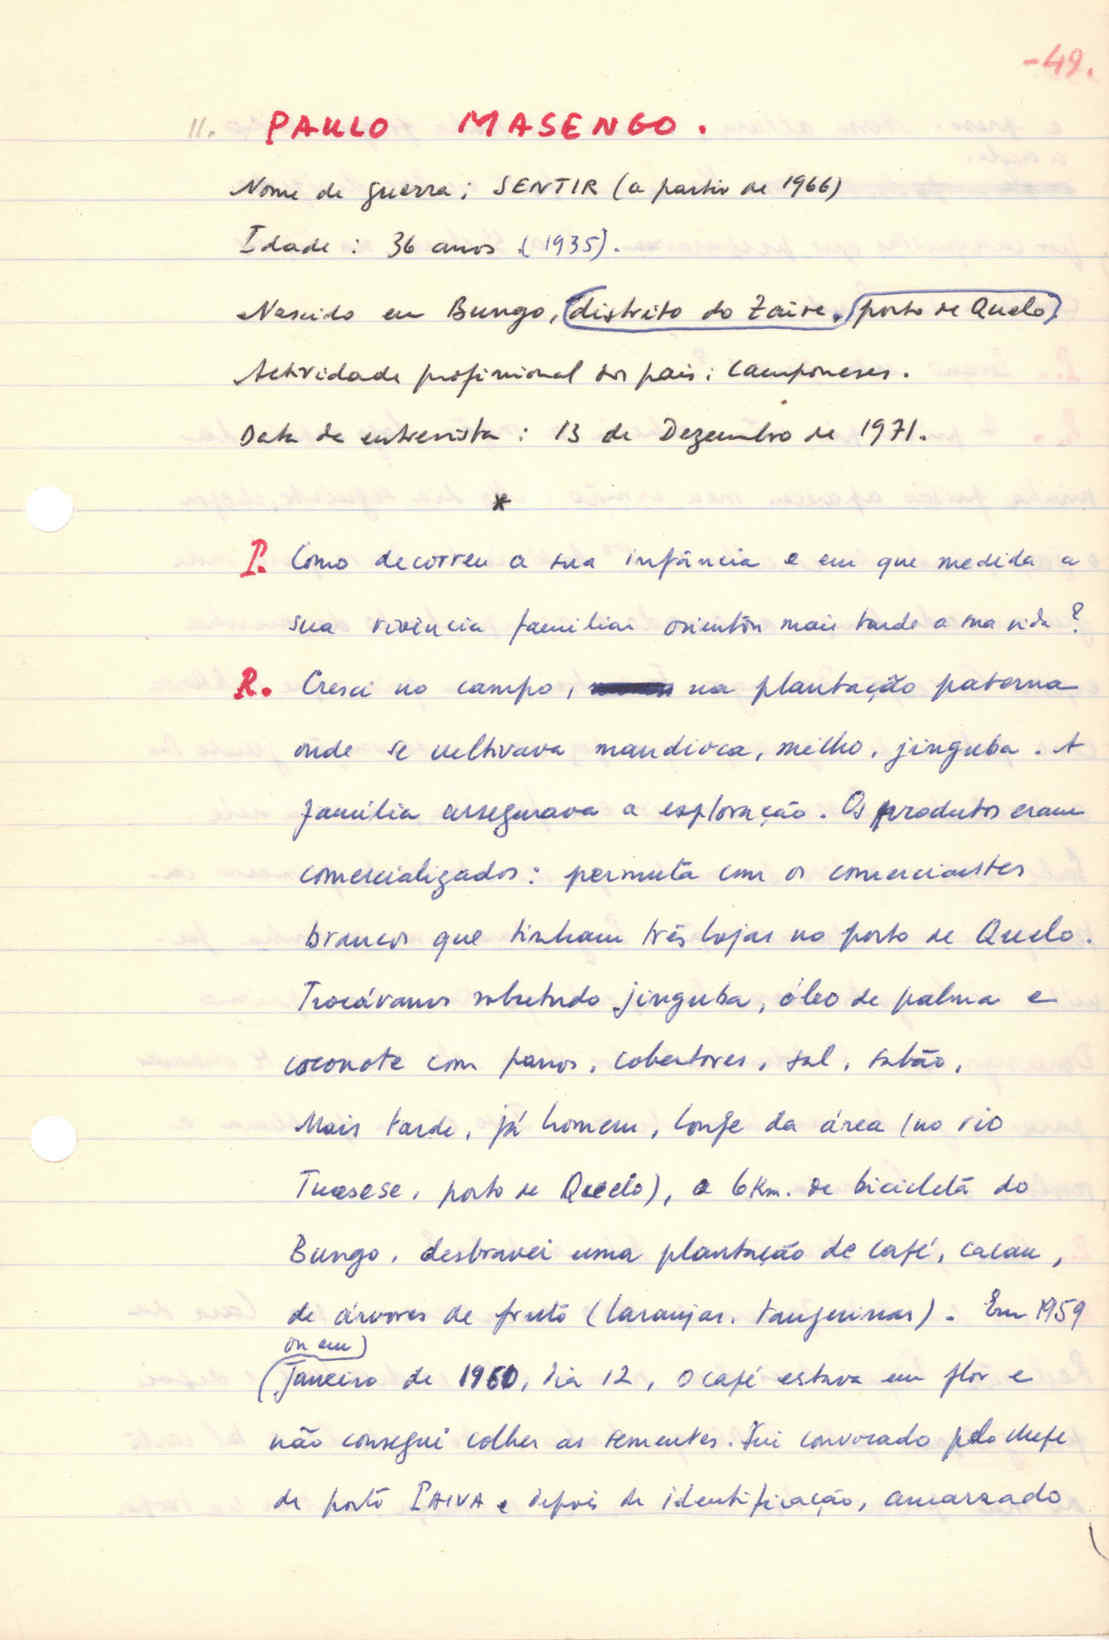 -49.
11. PAULO MASENGO.
Nome de guerra: SENTIR (a partir de 1966)
Idade: 36 anos (1935).
Nascido em Bungo, (distrito do Zaire, (posto de Quelo)
Actividade profissional dos pais: Camponeses.
Data da entrevista: 13 de Dezembro de 1971.
*
P. Como decorreu a sua infância e em que medida a
sua vivência familiar orientou mais tarde a sua vida?
R. Cresci no campo, na plantação paterna
onde se cultivava mandioca, milho, jinguba. A
família assegurava a exploração. Os produtos eram
comercializados: permuta com os comerciantes
brancos que tinham três lojas no posto de Quelo.
Trocávamos sobretudo jinguba, óleo de palma e
coconote com panos, cobertores, sal, sabão.
Mais tarde, já homem, longe da área (no rio
Tuesese, posto de Quelo), a 6 Km. de bicicleta do
Bungo, desbravei uma plantação de café, cacau,
de árvores de fruto (laranjas, tangerinas). Em 1959
ou em)
(Janeiro de 1960, dia 12, o café estava em flor e
não consegui colher as sementes. Fui convocado pelo chefe
de posto PAIVA e depois de identificação, amarrado